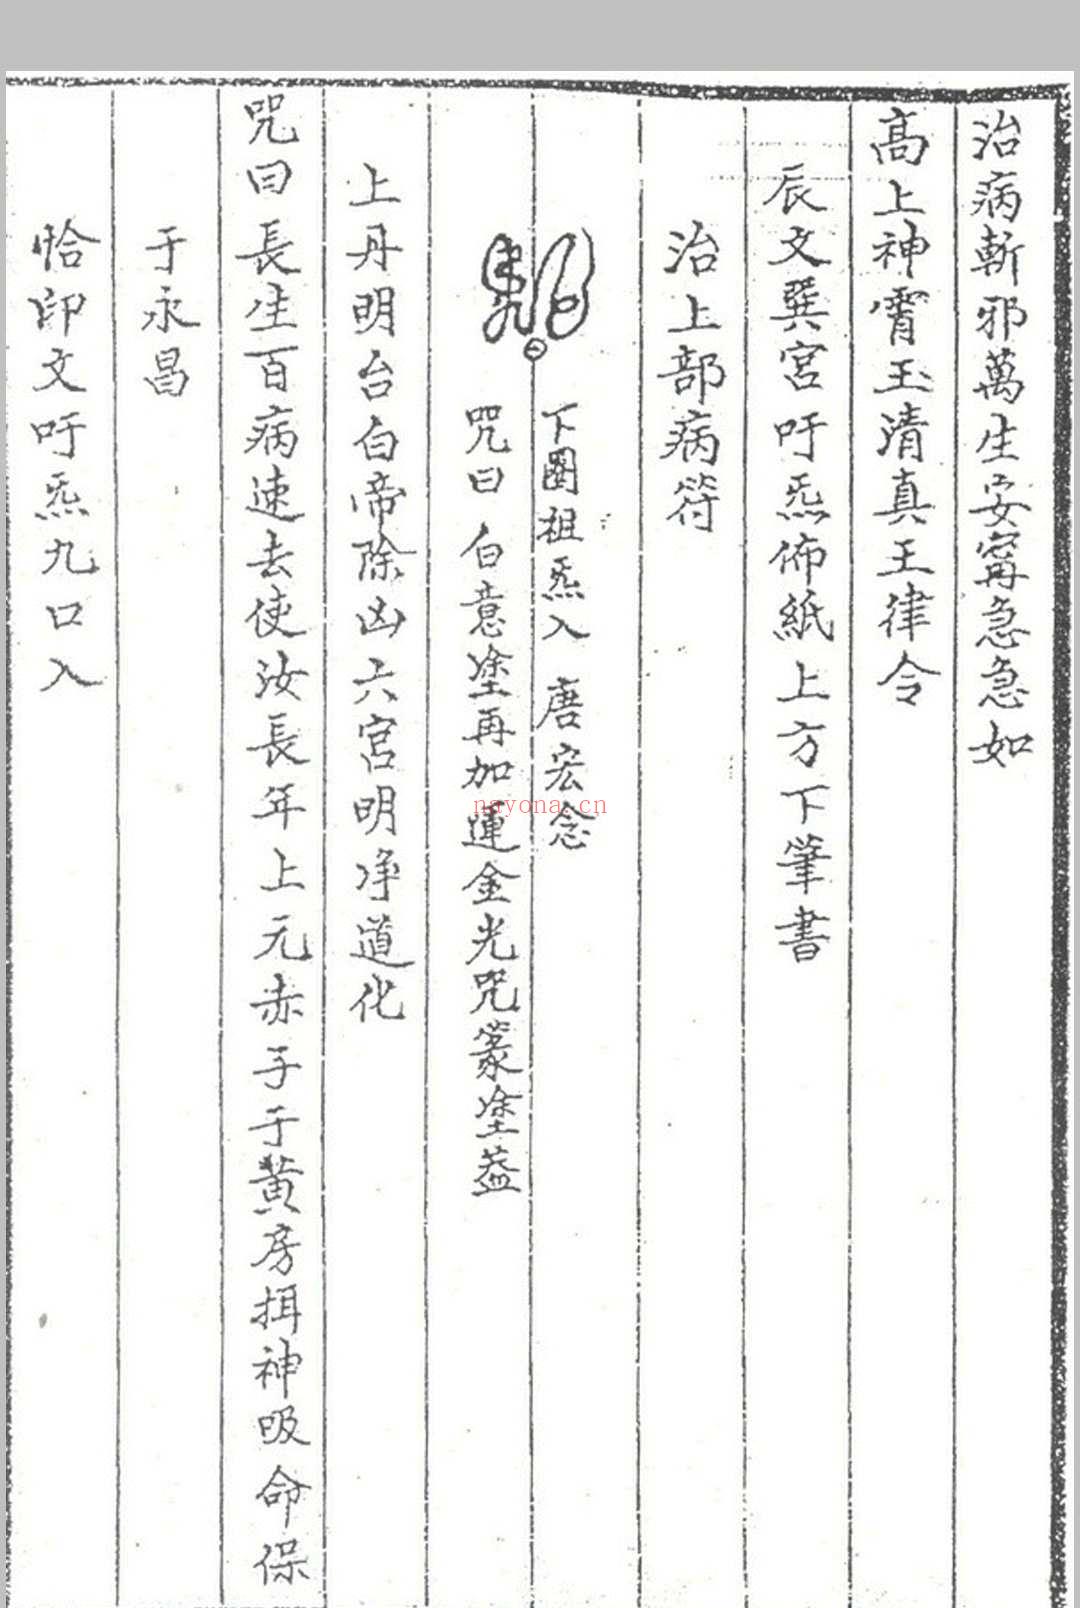 治病斬邪萬生安寗急急如
高上神霄玉清真王律令
辰文巽宮吁炁佈紙上方下筆書
治上部病符
下圈祖炁入 唐宏念
咒曰 白意塗再加運金光咒篆塗蓋
上丹明台白帝除凶六宮明净道化
咒曰長生百病速去使汝長年上元赤子于黄房揖神吸命保
于永昌
恰印文吁炁九口入
nayona.cn